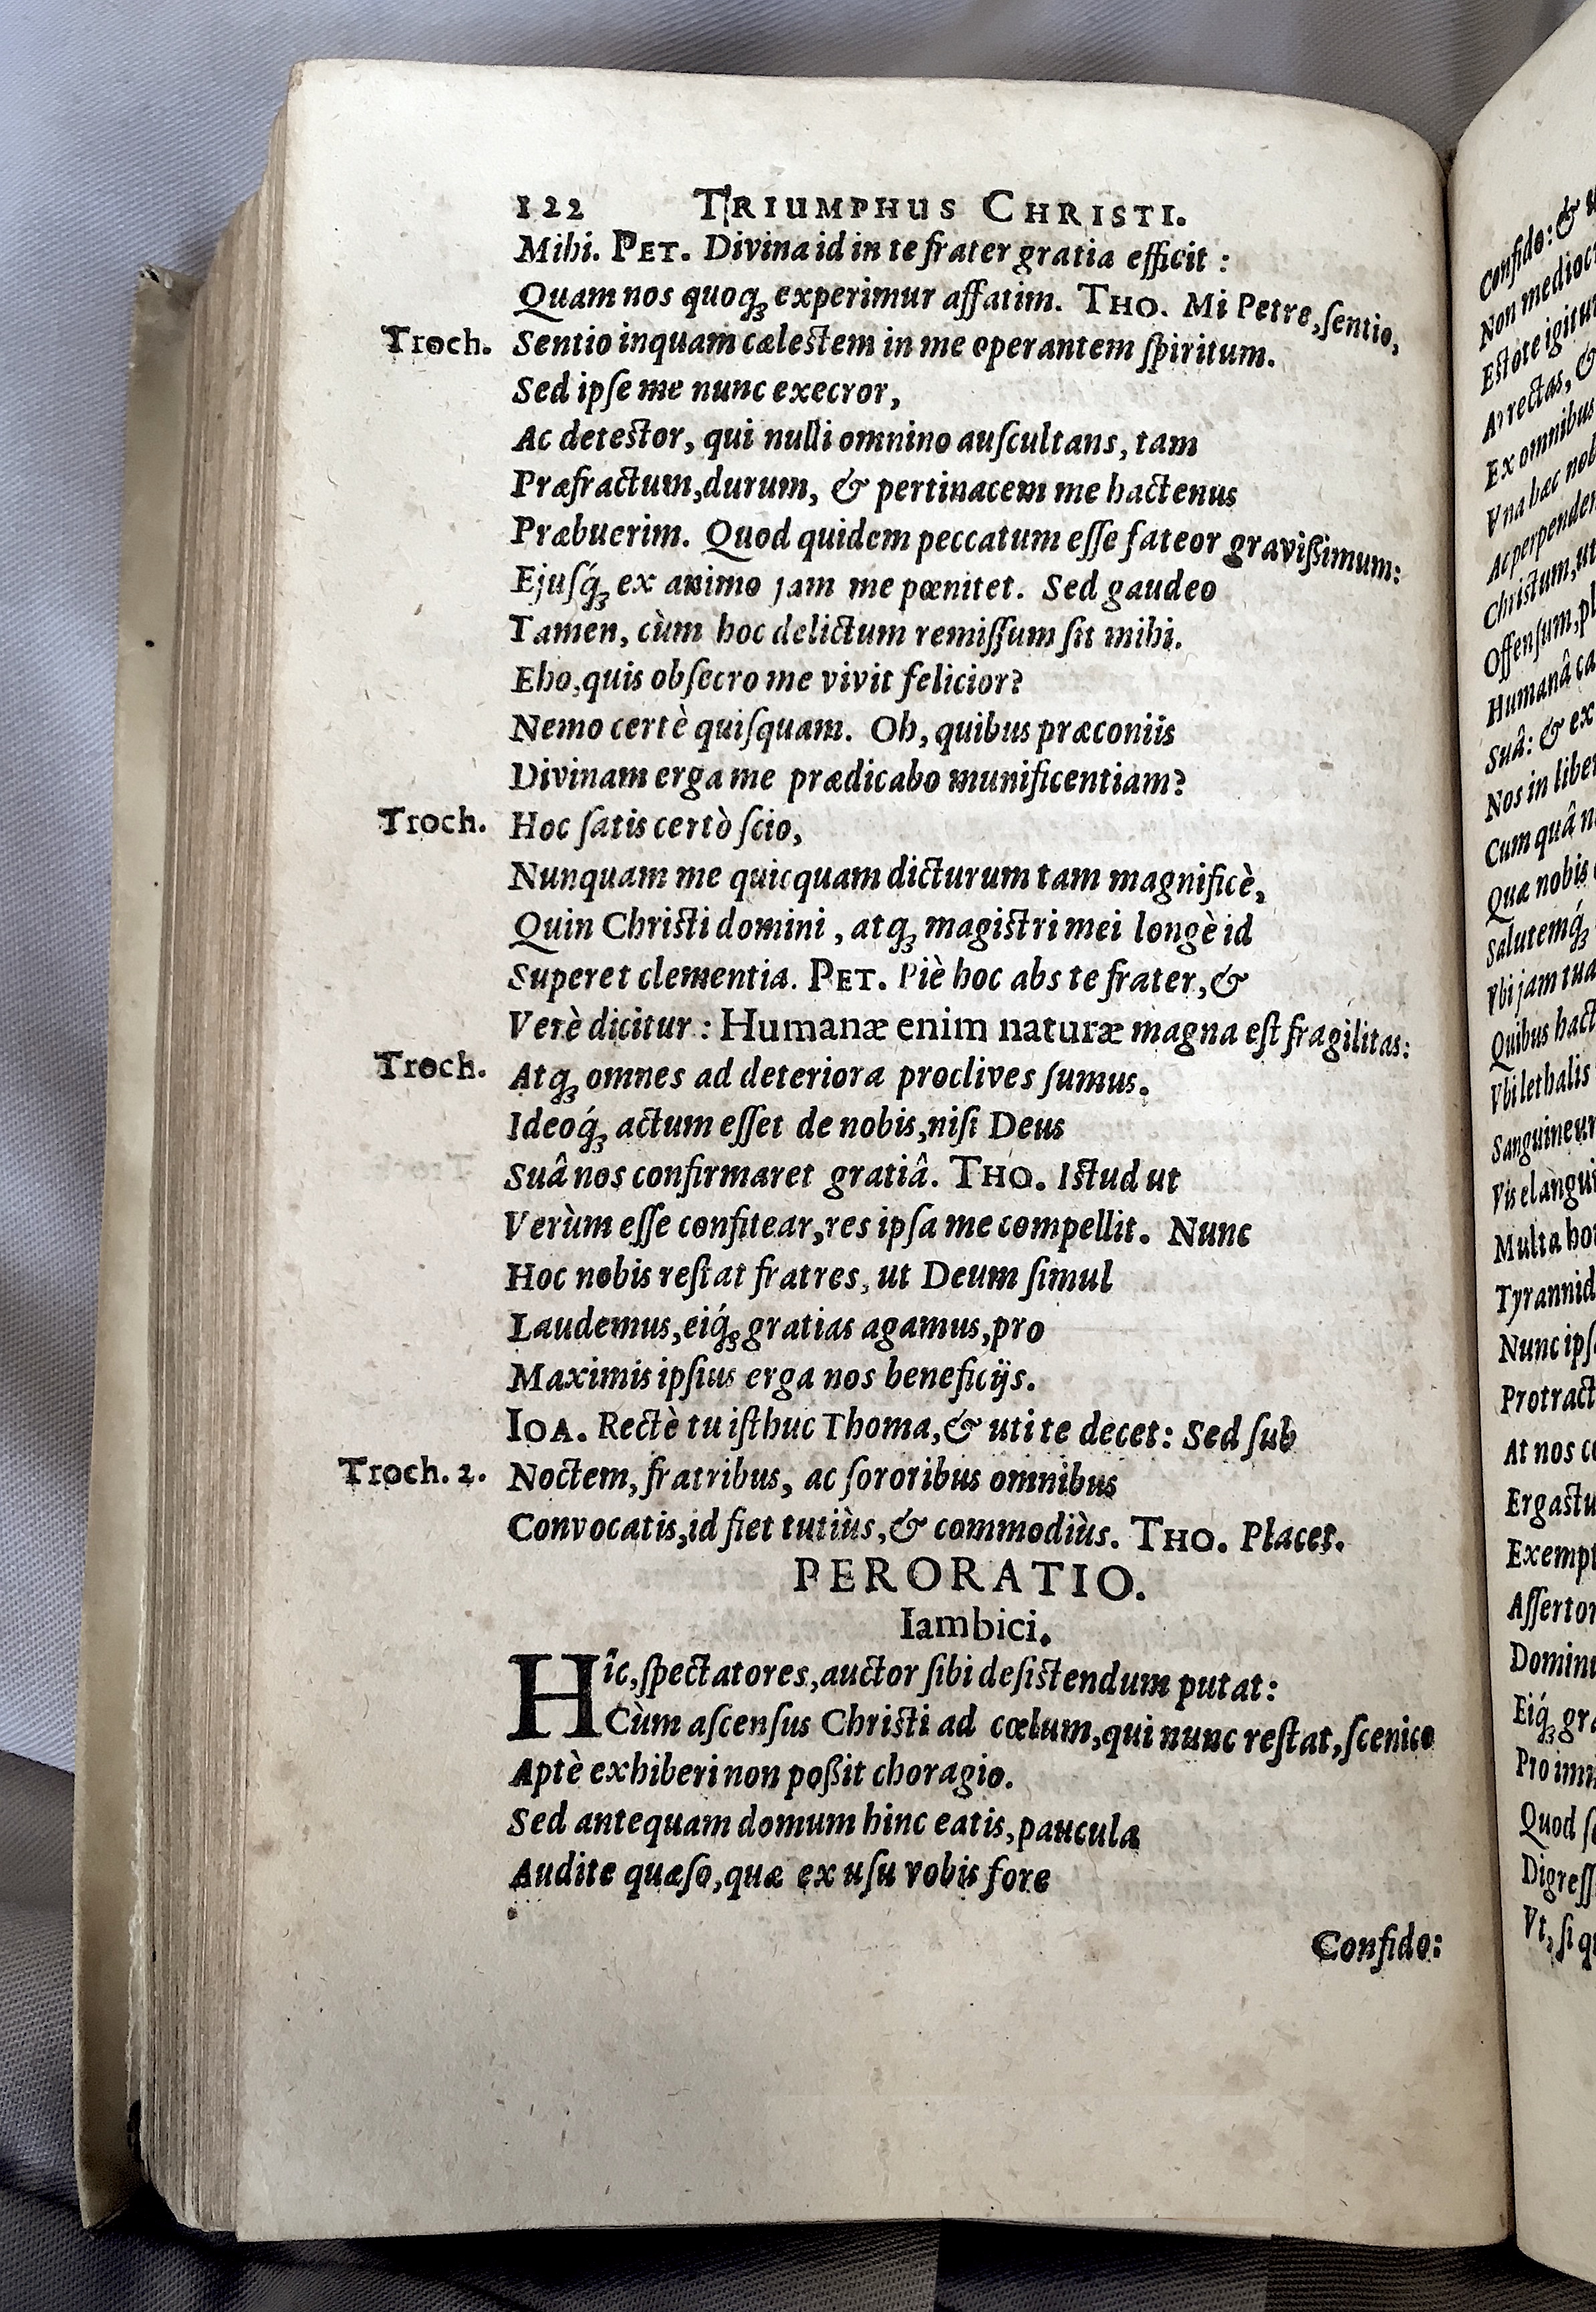 122 TRIUMPHUS CHRISTI.
Mihi. PET. Divina id in te frater gratia efficit :
Quam nos quoq; experimur affatim. THO. Mi Petre, ſentio,
Troch. Sentio inquam cælestem in me operantem ſpiritum.
Sed ipſe me nunc execror,
Ac detestor, qui nulli omnino auſcultans, tam
Præfractum, durum, & pertinacem me hactenus
Præbuerim. Quod quidem peccatum eſſe fateor gravißimum:
Ejuſq́; ex animo jam me pœnitet. Sed gaudeo
Tamen, cùm hoc delictum remiſſum ſit mihi.
Eho, quis obſecro me vivit felicior?
Nemo certè quiſquam. Oh, quibus præconiis
Divinam erga me prædicabo munificentiam?
Troch. Hoc ſatis certò ſcio,
Nunquam me quicquam dicturum tam magnificè,
Quin Christi domini, atq; magistri mei longè id
Superet clementia. PET. Piè hoc abs te frater, &
Verè dicitur : Humanæ enim naturæ magna eſt fragilitas:
Troch. Atq; omnes ad deteriora proclives ſumus.
Ideoq́; actum eſſet de nobis, niſi Deus
Suâ nos confirmaret gratiâ. THO. Istud ut
Verùm eſſe confitear, res ipſa me compellit. Nunc
Hoc nobis reſtat fratres, ut Deum ſimul
Laudemus, eiq́; gratias agamus, pro
Maximis ipſius erga nos beneficijs.
IOA. Rectè tu iſthuc Thoma, & uti te decet: Sed ſub
Troch. 2. Noctem, fratribus, ac ſororibus omnibus
Convocatis, id fiet tutiùs, & commodiùs. THO. Placet.
PERORATIO.
Iambici.
Hîc, ſpectatores, auctor ſibi deſistendum putat:
Cùm aſcenſus Christi ad cœlum, qui nunc reſtat, ſcenico
Aptè exhiberi non poßit choragio.
Sed antequam domum hinc eatis, paucula
Audite quæſo, quæ ex uſu vobis fore
Confido:
Confido: &
Non
Eſtote igitur
Arrectas, &
Ex omnibus
Vna hæc
Ac
Christum, ut
Offenſum,
Humanâ
Suâ: & ex
Nos in
Cum quâ
Qua nobis
Salutemq́;
Vbi jam
Quibus
Vbi lethalis

Vis
Multa

Nunc

At nos




Eiq́;
Pro
Quod

Vt, ſi